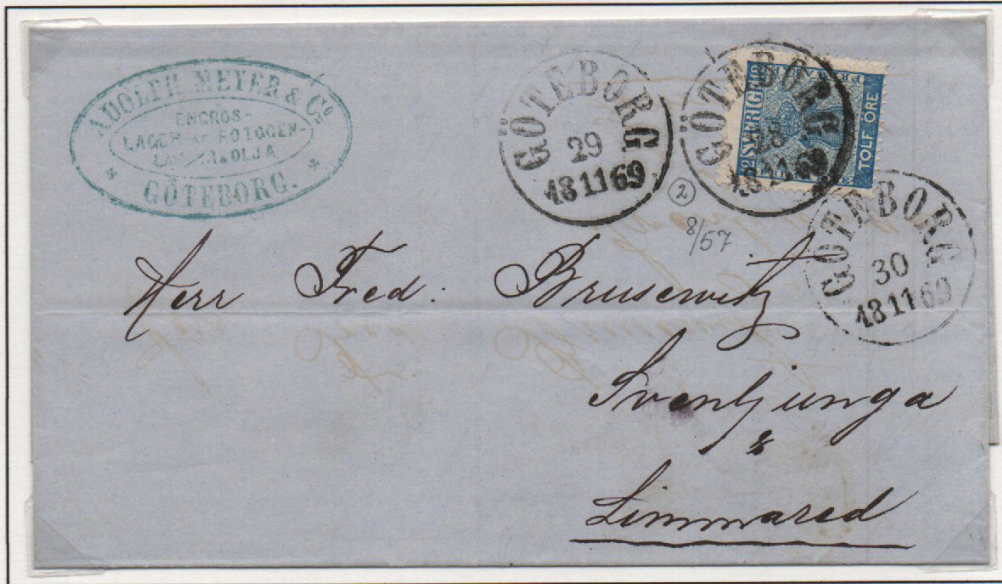 ADOLPH MEYER & Co.
ENGROS-
LAGER AF FOTOGEN-
OLJA
GÖTEBORG.
GÖTEBORG
29
18 11 69
GÖTEBORG
28
18 11 69
SVERIGE
TOLF ÖRE
GÖTEBORG
30
18 11 69
2
8/57
Herr Fred: Brusewitz
Svenljunga
&
Limmared